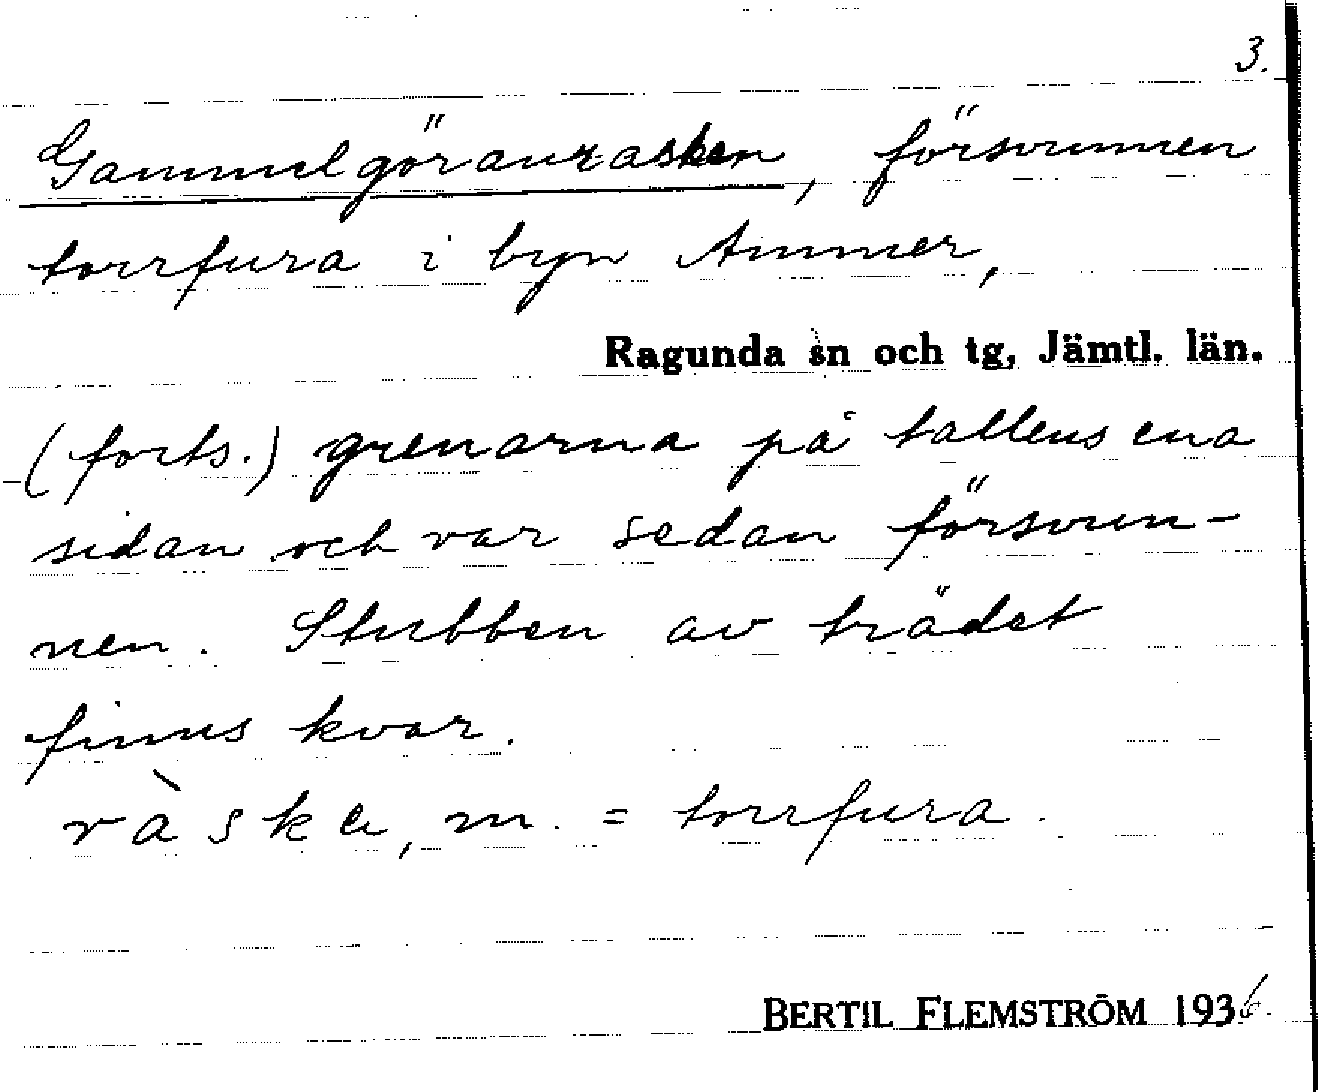 3.
Gammelgöranrasken, försvunnen
torrfura i byn Ammer,
Ragunda sn och tg, Jämtl. län.
(forts.) grenarna på tallens ena
sidan och var sedan försvun-
nen. Stubben av trädet
finns kvar.
ràska, m. = torrfura.
BERTIL FLEMSTRÖM 1936